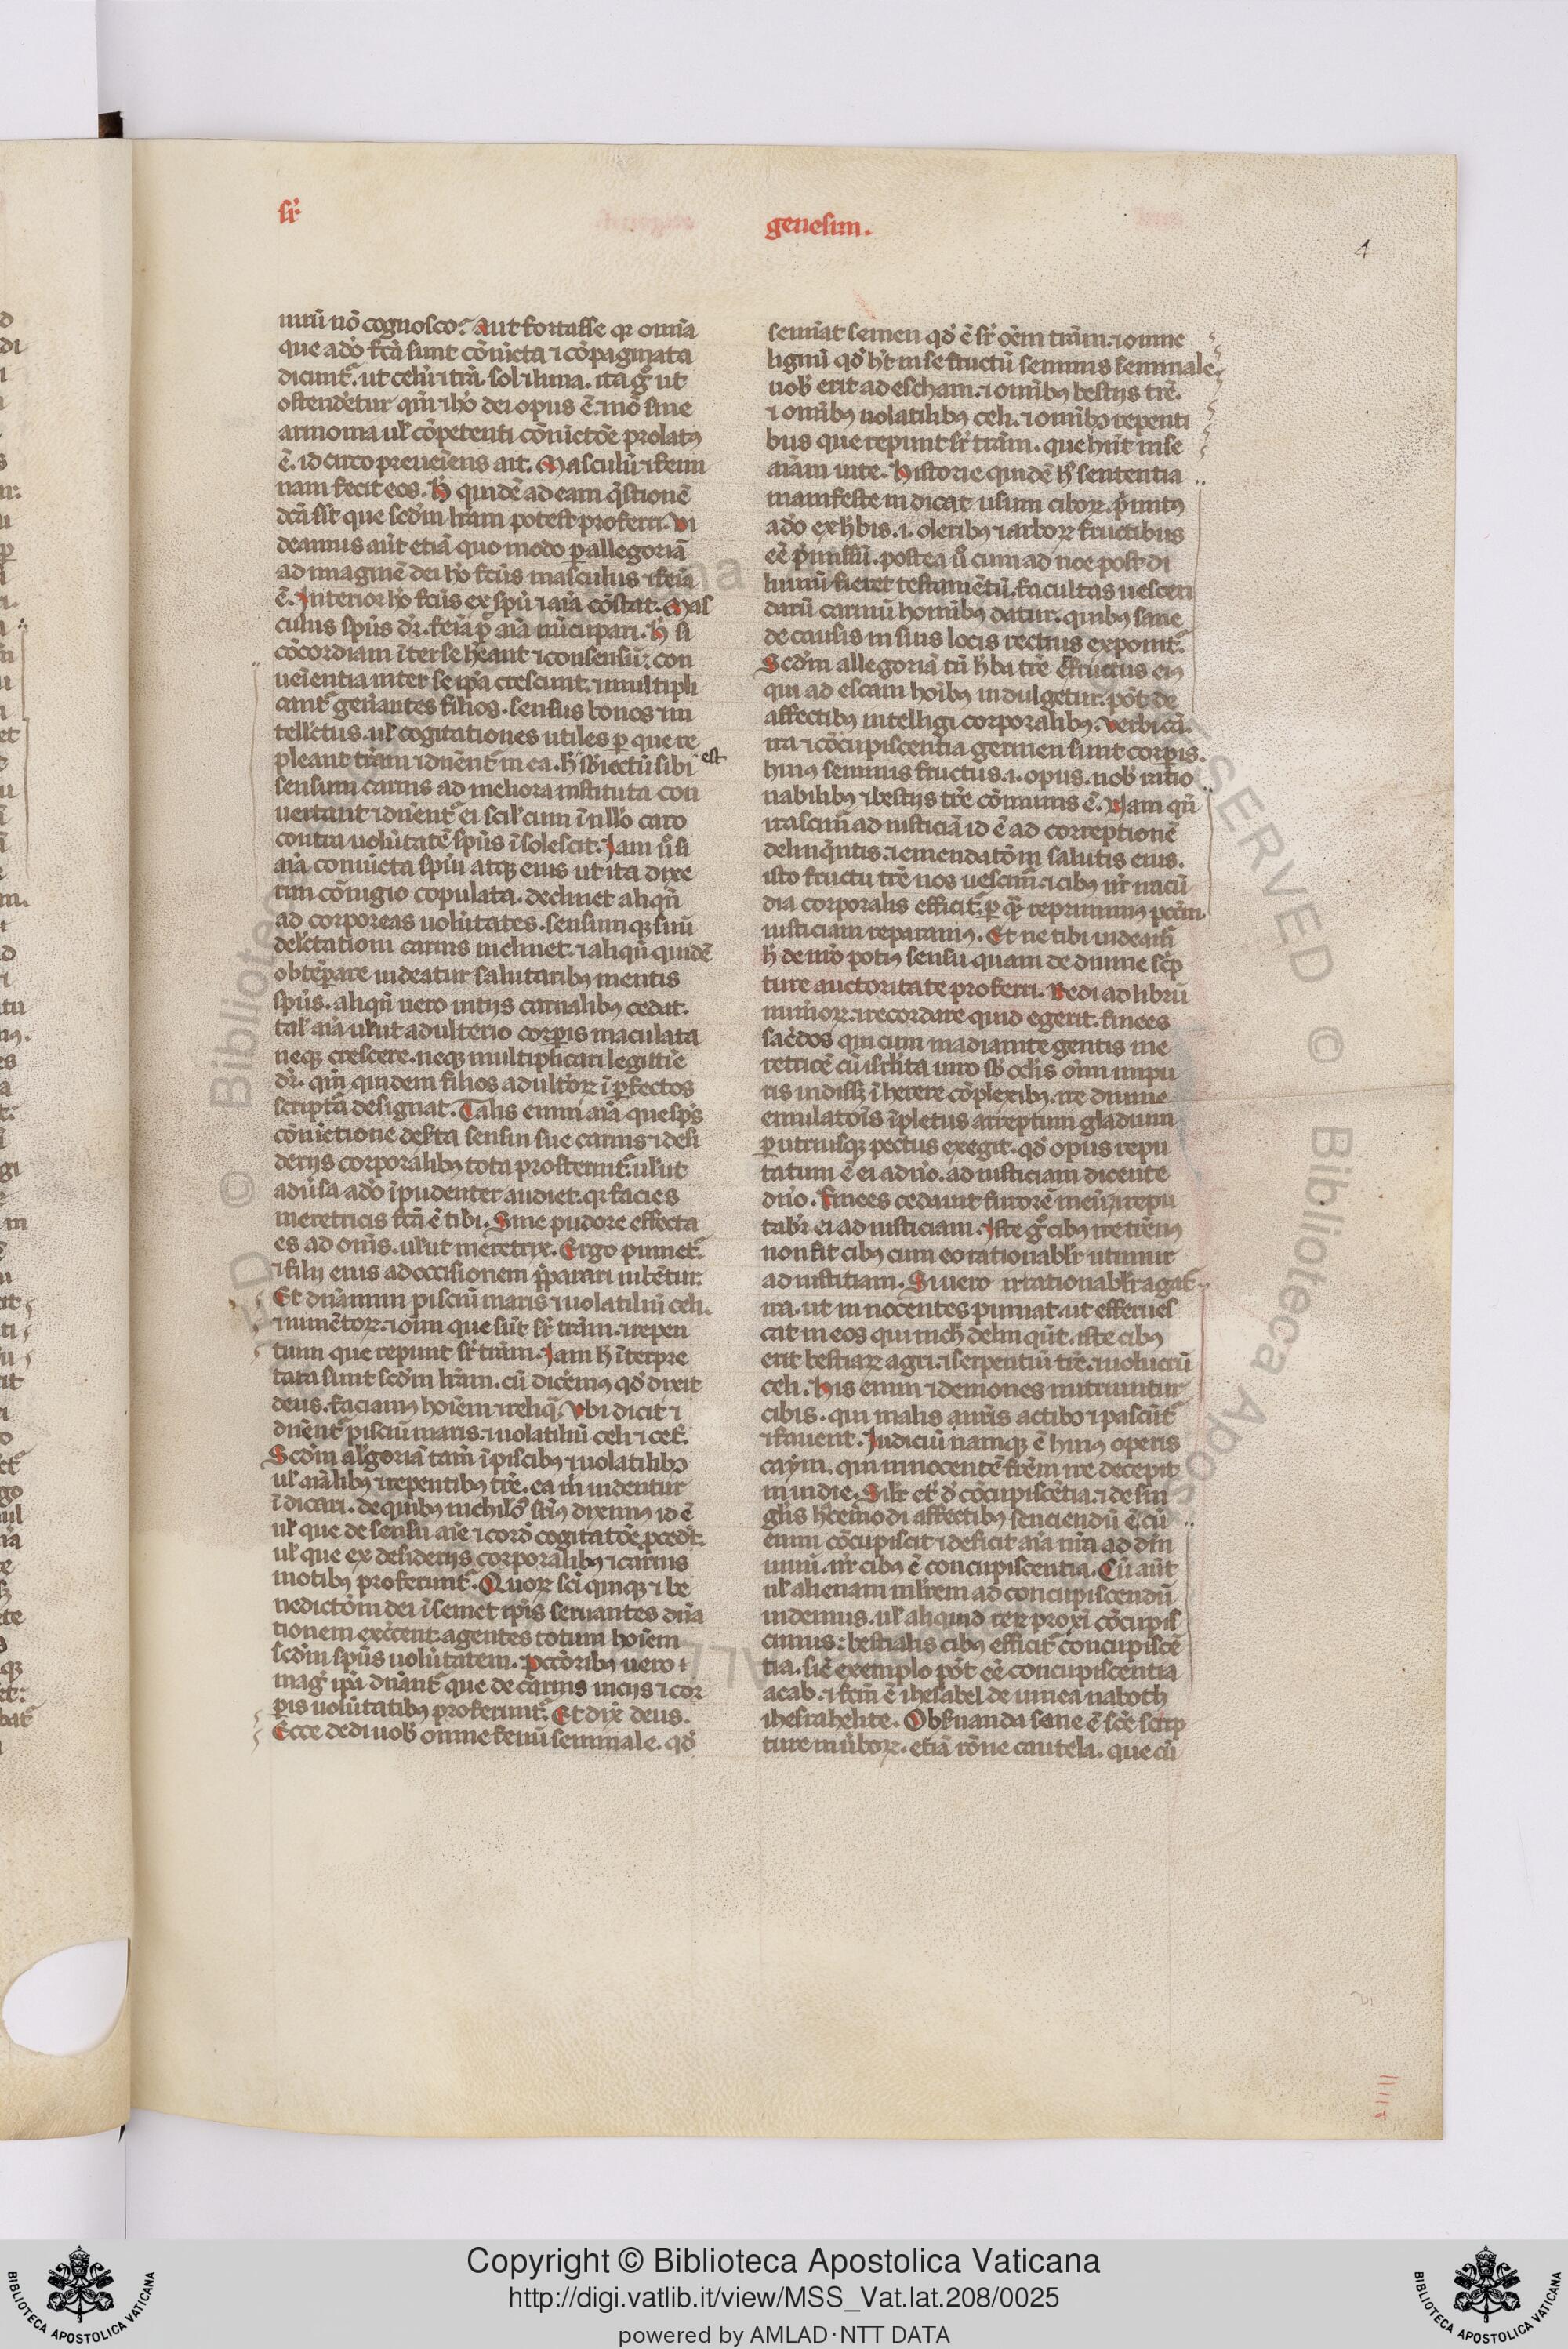 sr̄
genesim.
4
mirū nō cognosco. Aut fortasse qr omīa
que adō fcā sunt cōiūcta ⁊ cōpaginata
dicunt᷑. ut celū ⁊ tr̄a. sol ⁊ luna. ita gͦ ut
ostenderetur qm̄ ⁊ hō dei opus ē. ⁊ nō sine
armonia ul̄ cōpetenti cōiūctōe prolatꝰ
ē. idcirco preueniens ait. Masculū ⁊ femi
nam fecit eos. H̄ quidē ad eam q̄stionē
dcā sīt que scd̄m lr̄am potest proferri. Vi
deamus aūt etiā quomodo ꝑ allegoriā
ad imaginē dei hō fcūs masculus ⁊ feīa
ē. Interior hō fcūs ex spū ⁊ aīa cōstat. Mas
culus spūs dr̄. feīa p̄ aīa nūcupari. H̄ si
cōcordiam īter se hēant ⁊ consensū: con
uenientia inter se ipā crescunt. ⁊ multipli
cant᷑ generantes filios. sensus bonos ⁊ in
tellectus. ul̄ cogitationes utiles ꝑ que re
pleant trām ⁊ dn̄ent᷑ in ea. h̄ sb̄iectū sibi est
sensum carnis ad meliora instituta con
uertant ⁊ dn̄ent᷑ ei scil̄ cum ī nullo caro
contra uolūtatē spūs īsolescit. Jam ū si
aīa coniūcta spūi atqꝫ eius ut ita dixe
rim cōiugio copulata. declinet aliqn̄
ad corporeas uolūtates. sensumqꝫ suū
delectationi carnis inclinet. ⁊ aliqn̄ quidē
obtēperare uideatur salutaribꝰ mentis
spūs. aliqn̄ uero uitijs carnalibꝰ cedat.
tal̄ aīa ul̄ut adulterio corꝑis maculata
neqꝫ crescere. neqꝫ multiplicari legittīe
dr̄. qm̄ quidem filios adulteroꝝ īꝑfectos
scriptā designat. Talis enim aīa que spūs
cōiūctione deserta sensui sue carnis ⁊ desi
derijs corporalibꝰ tota prosternit᷑ ul̄ut
aduersa adō īpudenter audiet. qr facies
meretricis fcā ē tibi. Sine pudore effecta
es ad om̄s. ul̄ut meretrix. Ergo puniet᷑.
⁊ filij eius ad occisionem p̄parari iubētur.
Et dn̄amini pisciū maris ⁊ uolatiliū celi.
⁊ iumētoꝝ. ⁊ oīm que sūt sr̄ trām. ⁊ repen
tium que repunt sr̄ trām. Jam h̄ īterpre
tata sunt scd̄m lr̄am. cū dicemꝰ qd̄ dixit
deus. faciamꝰ hoīem ⁊ reliq̄. Vbi dicit ⁊
dn̄ent᷑ pisciū maris. ⁊ uolatiliū celi ⁊ cet̄.
Scd̄m al̄goriā tam̄ ī piscibꝰ ⁊ uolatilibꝰ
ul̄ aīalibꝰ ⁊ repentibꝰ tr̄e. ea m̄ uidentur
īdicari. de quibꝰ nichilōꝰ suꝑiꝰ diximꝰ id ē
ul̄ que de sensu aīe ⁊ cord̄ cogitatōe ꝓced̄t.
ul̄ que ex desiderijs corporalibꝰ ⁊ carnis
motibꝰ proferunt᷑. Quoꝝ scī quiqꝫ ⁊ be
nedictōm dei ī semet ip̄is seruantes dn̄a
tionem exercent agentes totum hoīem
scd̄m spūs uolūtatem. Pccōribꝰ uero ⁊
mag᷑ ip̄i dn̄ant᷑ que de carnis uicijs ⁊ cor
ꝑis uolūtatibꝰ proferunt᷑. Et dix̄ deus.
Ecce dedi uob̄ omne fenū seminale. qd̄
seminat semen qd̄ ē sr̄ oēm trām. ⁊ omne
lignū qd̄ h̄t in se fructū seminis seminale.
uob̄ erit ad escham. ⁊ om̄ibꝰ bestijs tr̄e.
⁊ om̄ibꝰ uolatilibꝰ celi. ⁊ om̄ibꝰ repenti
bus que repunt sr̄ trām. que hn̄t in se
aīam uite. Historie quidē hꝰ sententia
manifeste indicat usum ciboꝝ. p̄mitꝰ
adō ex h̄bis. i. oleribꝰ ⁊ arboꝝ fructibus
eē p̄missū. postea ū cum ad noe post di
luuiū fieret testamētū. facultas uescen
darū carniū hominibꝰ datur. quibꝰ sane
de causis in suis locis rectius exponit᷑.
Scd̄m allegoriā tn̄ h̄ba tr̄e ⁊ fructus eiꝰ
qui ad escam hoībꝰ indulgetur. pōt de
affectibꝰ intelligi corporalibꝰ. Verbi cā.
ira ⁊ cōcupiscentia germen sunt corꝑis.
huiꝰ seminis fructus. i. opus. nob̄ ratio
nabilibꝰ ⁊ bestijs tr̄e cōmunis ē. Nam qn̄
irascim̄ ad iusticiā id ē ad correptionē
delinq̄ntis. ⁊ emendatōm salutis eius.
isto fructu tr̄e nos uescim̄. ⁊ cibꝰ nr̄ iracū
dia corporalis efficit᷑. ꝑ q̄ reprimimꝰ pccm̄.
iusticiam reparamꝰ. Et ne tibi uideam̄
h̄ de nr̄o potiꝰ sensu quam de diuine scrip
ture auctoritate proferri. Redi ad librū
numeroꝝ. ⁊ recordare quid egerit. finees
sacerdos qui cum madianite gentis me
retricē cū isrlita uiro sb̄ oclis oīm impu
ris uidissꝫ īherere cōplexibꝰ. ire diuine
emulatōis īpletus arreptum gladium
ꝑ utriusqꝫ pectus exegit. qd̄ opus repu
tatum ē ei a dn̄o. ad iusticiam dicente
dn̄o. Finees cedauit furorē meū. ⁊ repu
tabr̄ ei ad iusticiam. Iste gͦ cibꝰ ire trenꝰ
non fit cibꝰ cum eo rationablr̄ utimur
ad iustitiam. Si uero irrationablr̄ agat᷑
ira. ut innocentes puniat. ut efferues
cat in eos qui nichil̄ delinqūt. iste cibꝰ
erit bestiaꝝ agri. ⁊ serpentiū tr̄e. ⁊ uolucrū
celi. His enim ⁊ demones nutriuntur
cibis. qui malis nr̄is actibꝰ ⁊ pascūt᷑
⁊ fauent. Judiciū namqꝫ ē huiꝰ operis
caym. qui innocentē frēm ire decepit
inuidie. Silr̄ et̄ d̄ cōcupiscētia. ⁊ de sin
gl̄is hꝰcemodi affectibꝰ senciendū ē. cū
enim cōcupiscit ⁊ deficit aīa nr̄a ad dm̄
uiuū. nr̄ cibꝰ ē concupiscentia. Cū aūt
ul̄ alienam ml̄rem ad concupiscendū
uidemus. ul̄ aliquid reꝝ proxī cōcupis
cimus: bestialis cibꝰ efficit᷑ concupiscē
tia. sic̄ exemplo pōt eē concupiscentia
acab. ⁊ fcm̄ ē ihesabel de uinea naboth
ihesrahelite. Obs̄uanda sane ē scē scrip
ture in ūboꝝ. etiā rōne cautela. que cū
Copyright © Biblioteca Apostolica Vaticana
http://digi.vatlib.it/view/MSS_Vat.lat.208/0025
powered by AMLAD·NTT DATA